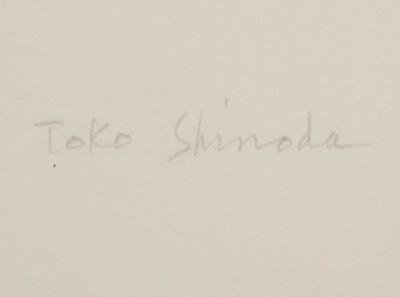 Toko Shinoda